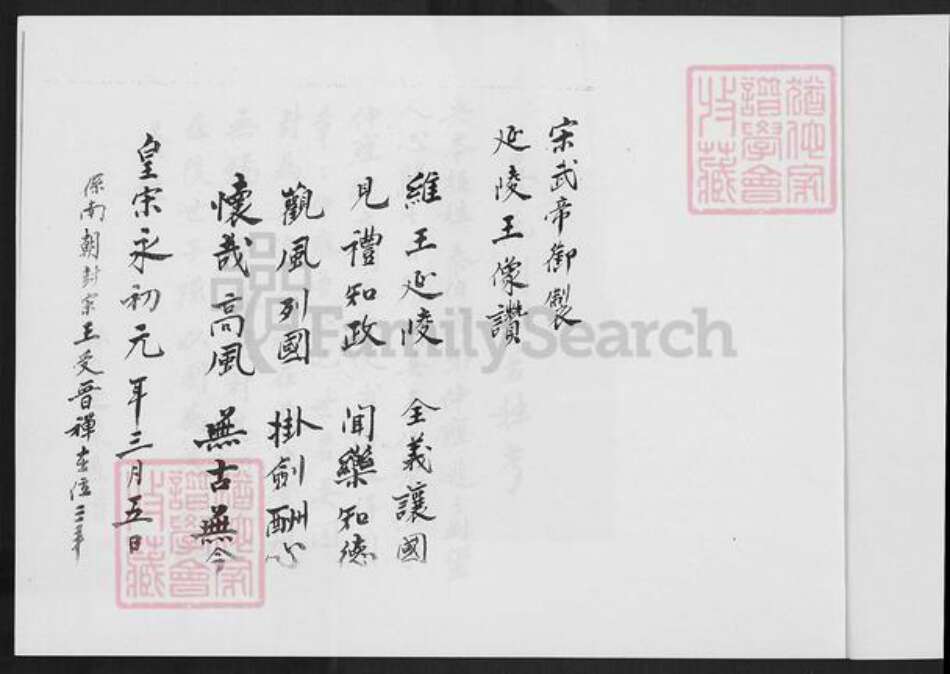 宋武帝御製
延陵王像讚
維王延陵 全義讓國
見禮知政 聞樂知德
觀風列國 掛劍酬心
懷哉高風 無古無今
皇宋永初元年三月五日
係南朝封宗王受晉禪在位三年
譜學會
收藏
FamilySearch